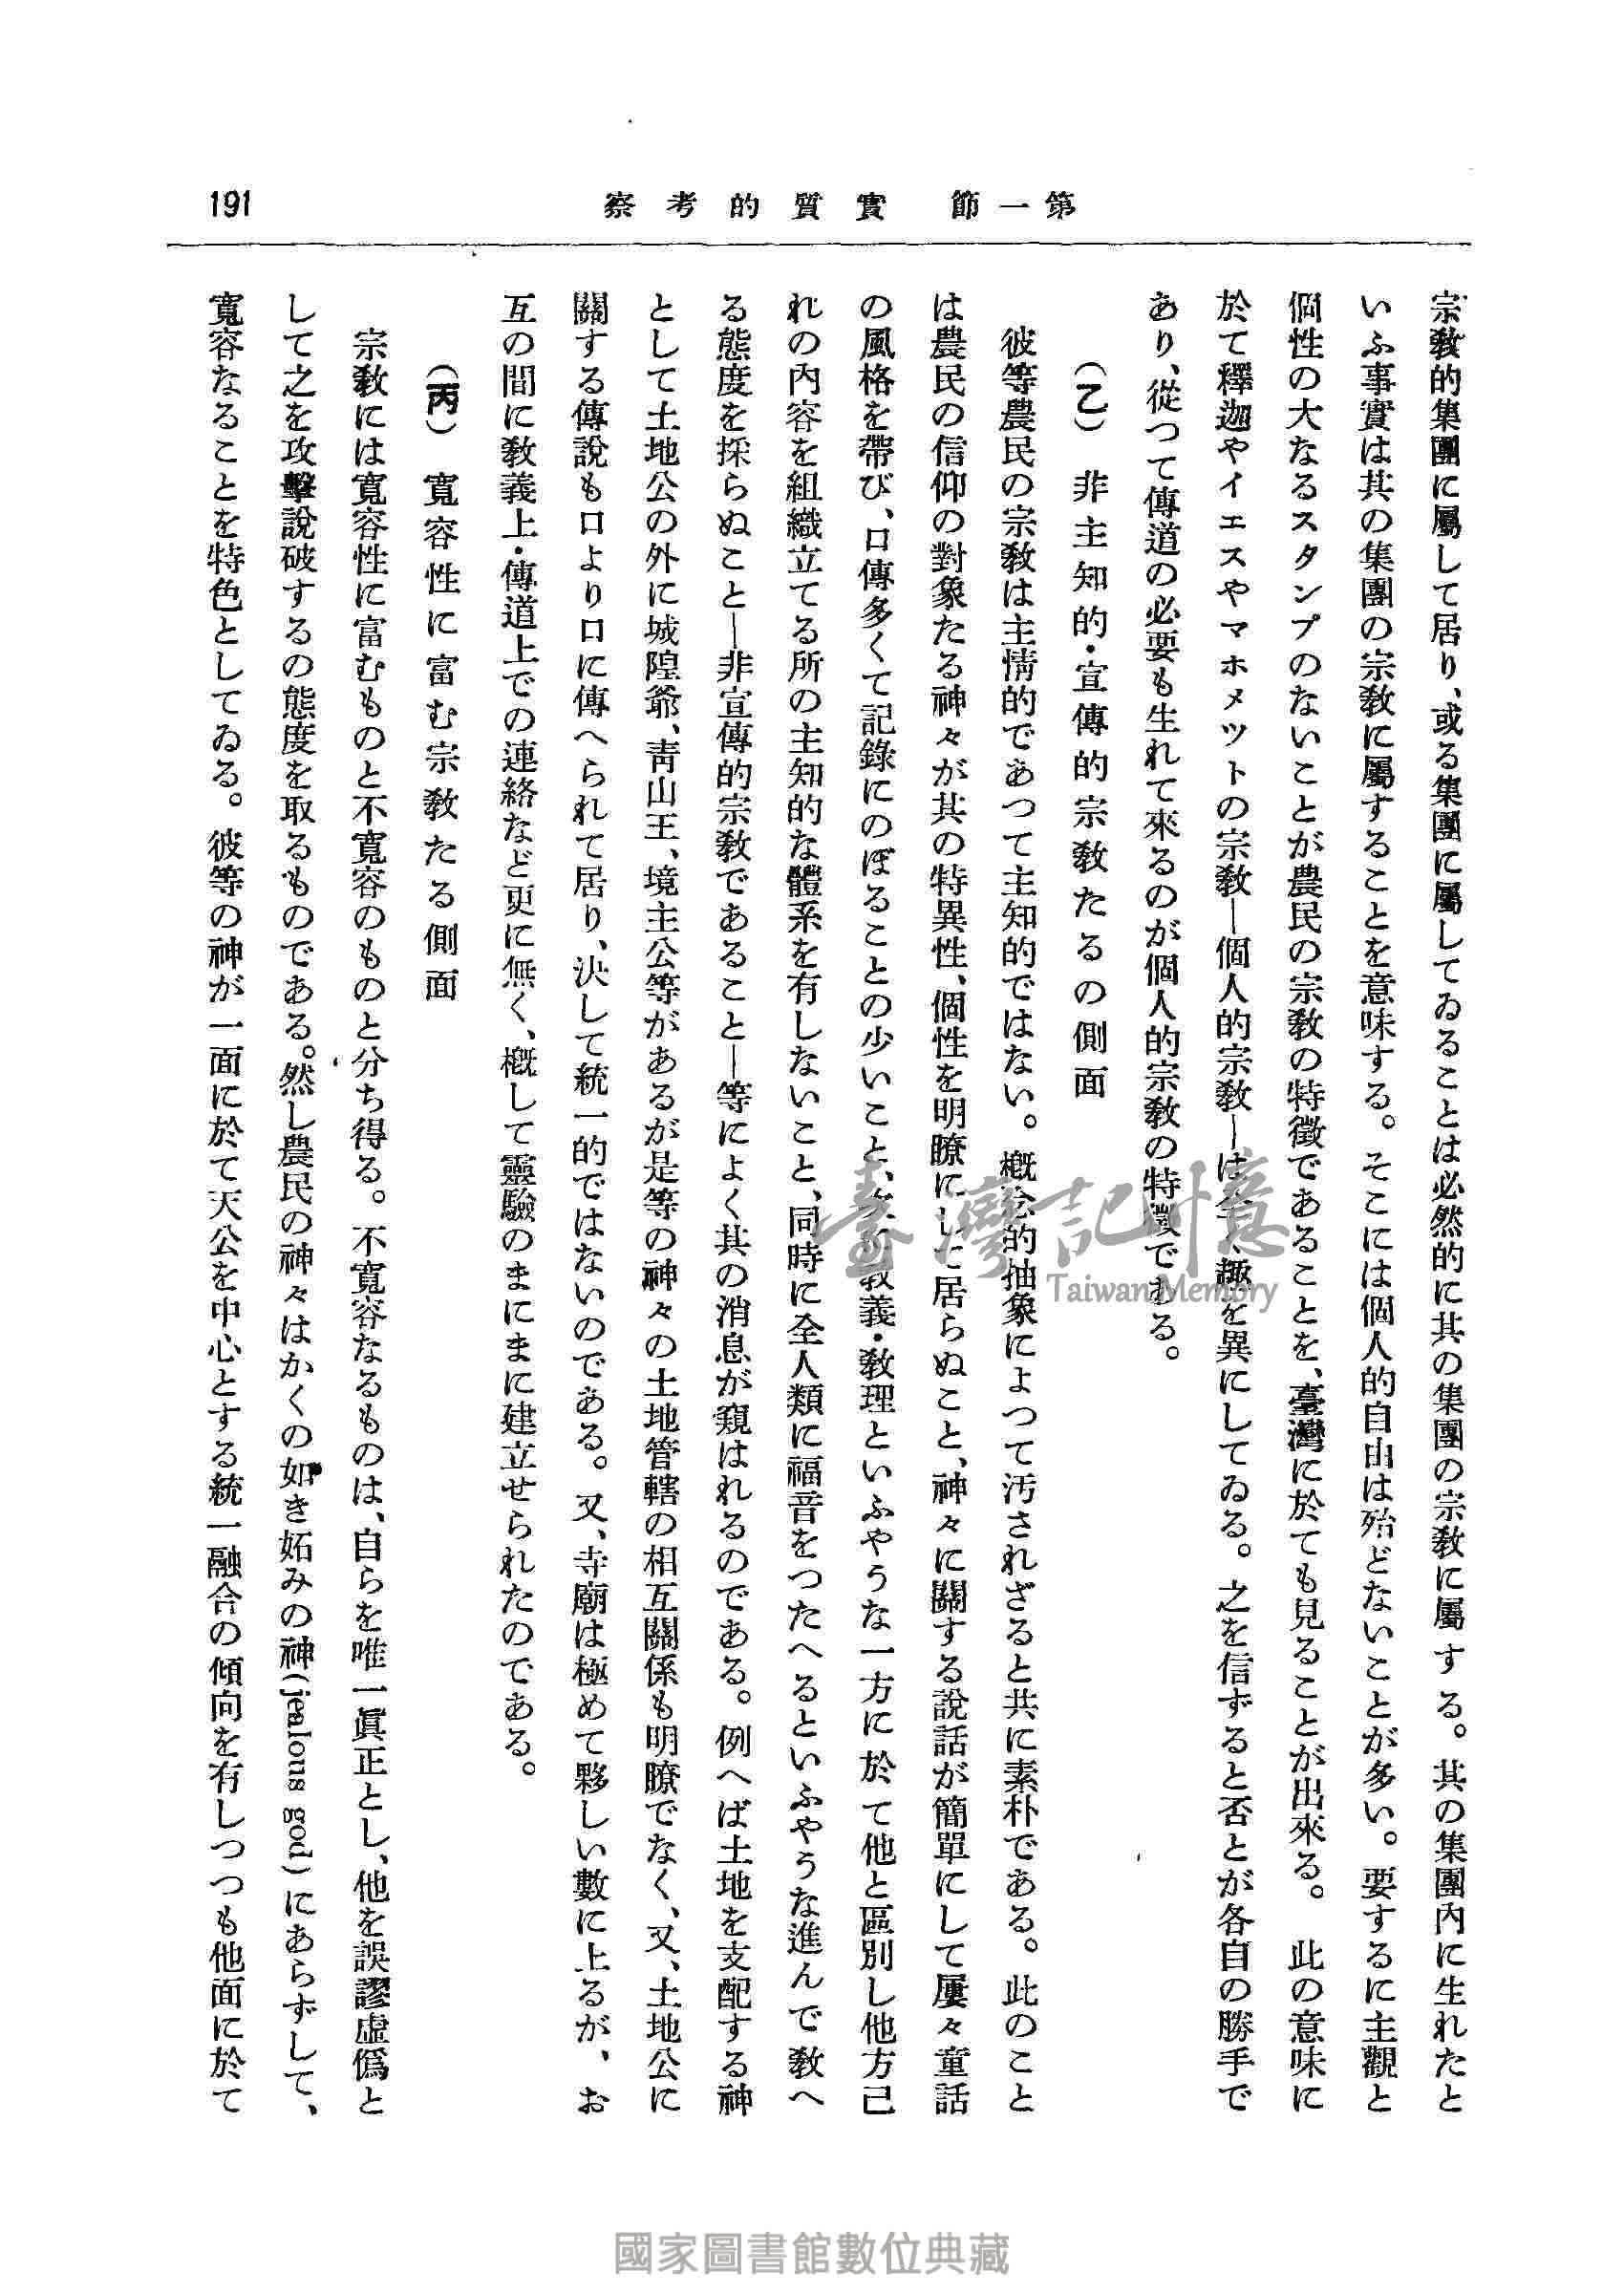 第一節　實質的考察
191
宗敎的集團に屬して居り、或る集團に屬してゐることは必然的に其の集團の宗敎に屬する。其の集團內に生れたと
いふ事實は其の集團の宗敎に屬することを意味する。そこには個人的自由は殆どないことが多い。要するに主觀と
個性の大なるスタンプのないことが農民の宗敎の特徵であることを、臺灣に於ても見ることが出來る。此の意味に
於て釋迦やイエスやマホメツトの宗敎―個人的宗敎―は全く趣を異にしてゐる。之を信ずると否とが各自の勝手で
あり、從つて傳道の必要も生れて來るのが個人的宗敎の特徵である。
(乙)　非主知的・宣傳的宗敎たるの側面
彼等農民の宗敎は主情的であつて主知的ではない。槪念的抽象によつて汚されざると共に素朴である。此のこと
は農民の信仰の對象たる神々が其の特異性、個性を明瞭にして居らぬこと、神々に關する說話が簡單にして屢々童話
の風格を帶び、口傳多くて記錄にのぼることの少いこと、敎義・敎理といふやうな一方に於て他と區別し他方己
れの內容を組織立てる所の主知的な體系を有しないこと、同時に全人類に福音をつたへるといふやうな進んで敎へ
る態度を採らぬこと―非宣傳的宗敎であること―等によく其の消息が窺はれるのである。例へば土地を支配する神
として土地公の外に城隍爺、靑山王、境主公等があるが是等の神々の土地管轄の相互關係も明瞭でなく、又、土地公に
關する傳說も口より口に傳へられて居り、決して統一的ではないのである。又、寺廟は極めて夥しい數に上るが、お
互の間に敎義上・傳道上での連絡など更に無く、槪して靈驗のまにまに建立せられたのである。
(丙)　寬容性に富む宗敎たる側面
宗敎には寬容性に富むものと不寬容のものと分ち得る。不寬容なるものは、自らを唯一眞正とし、他を誤謬虛僞と
して之を攻擊說破するの態度を取るものである。然し農民の神々はかくの如き妬みの神(jealous god)にあらずして、
寬容なることを特色としてゐる。彼等の神が一面に於て天公を中心とする統一融合の傾向を有しつつも他面に於て
臺灣記憶
Taiwan Memory
國家圖書館數位典藏